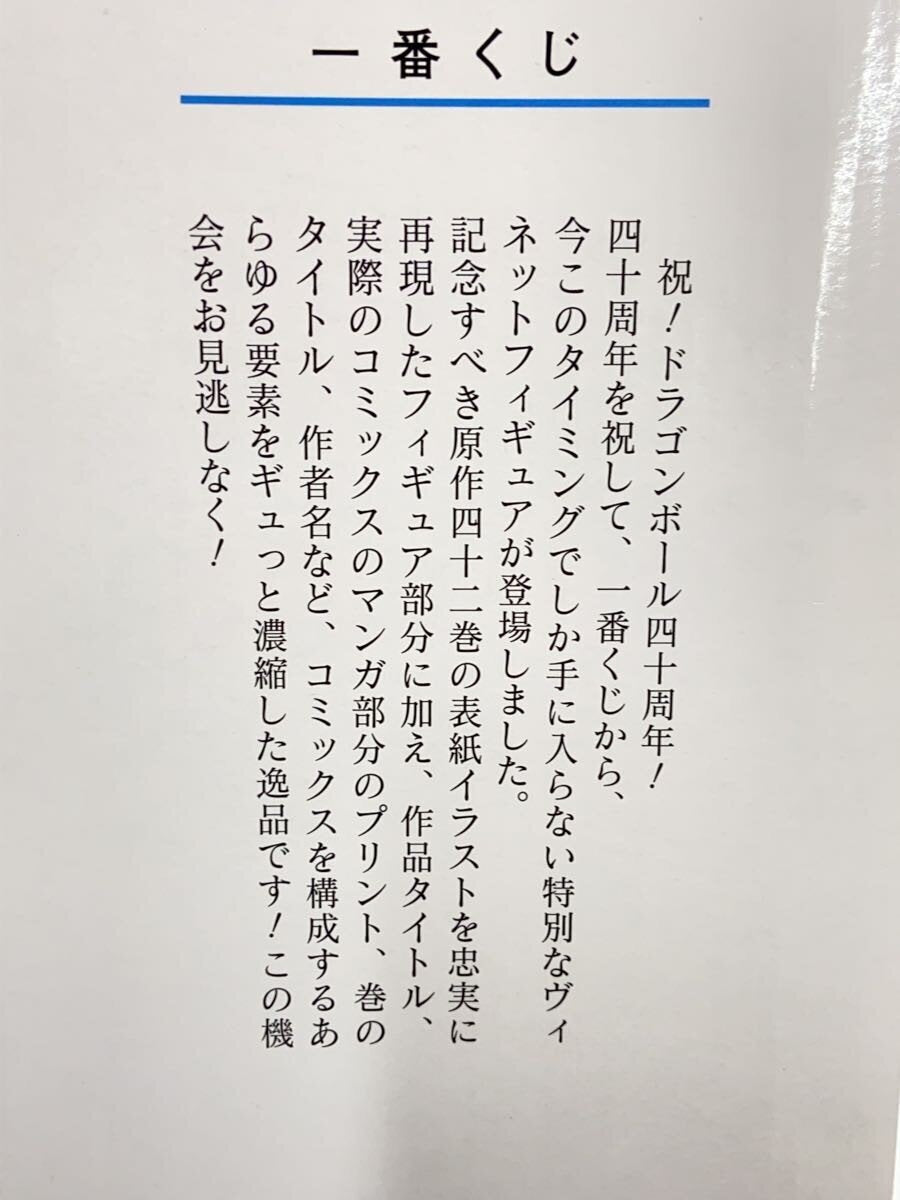 一番くじ
祝！ドラゴンボール四十周年！
四十周年を祝して、一番くじから、
今このタイミングでしか手に入らない特別なヴィ
ネットフィギュアが登場しました。
記念すべき原作四十二巻の表紙イラストを忠実に
再現したフィギュア部分に加え、作品タイトル、
実際のコミックスのマンガ部分のプリント、巻の
タイトル、作者名など、コミックスを構成するあ
らゆる要素をギュっと濃縮した逸品です！この機
会をお見逃しなく！